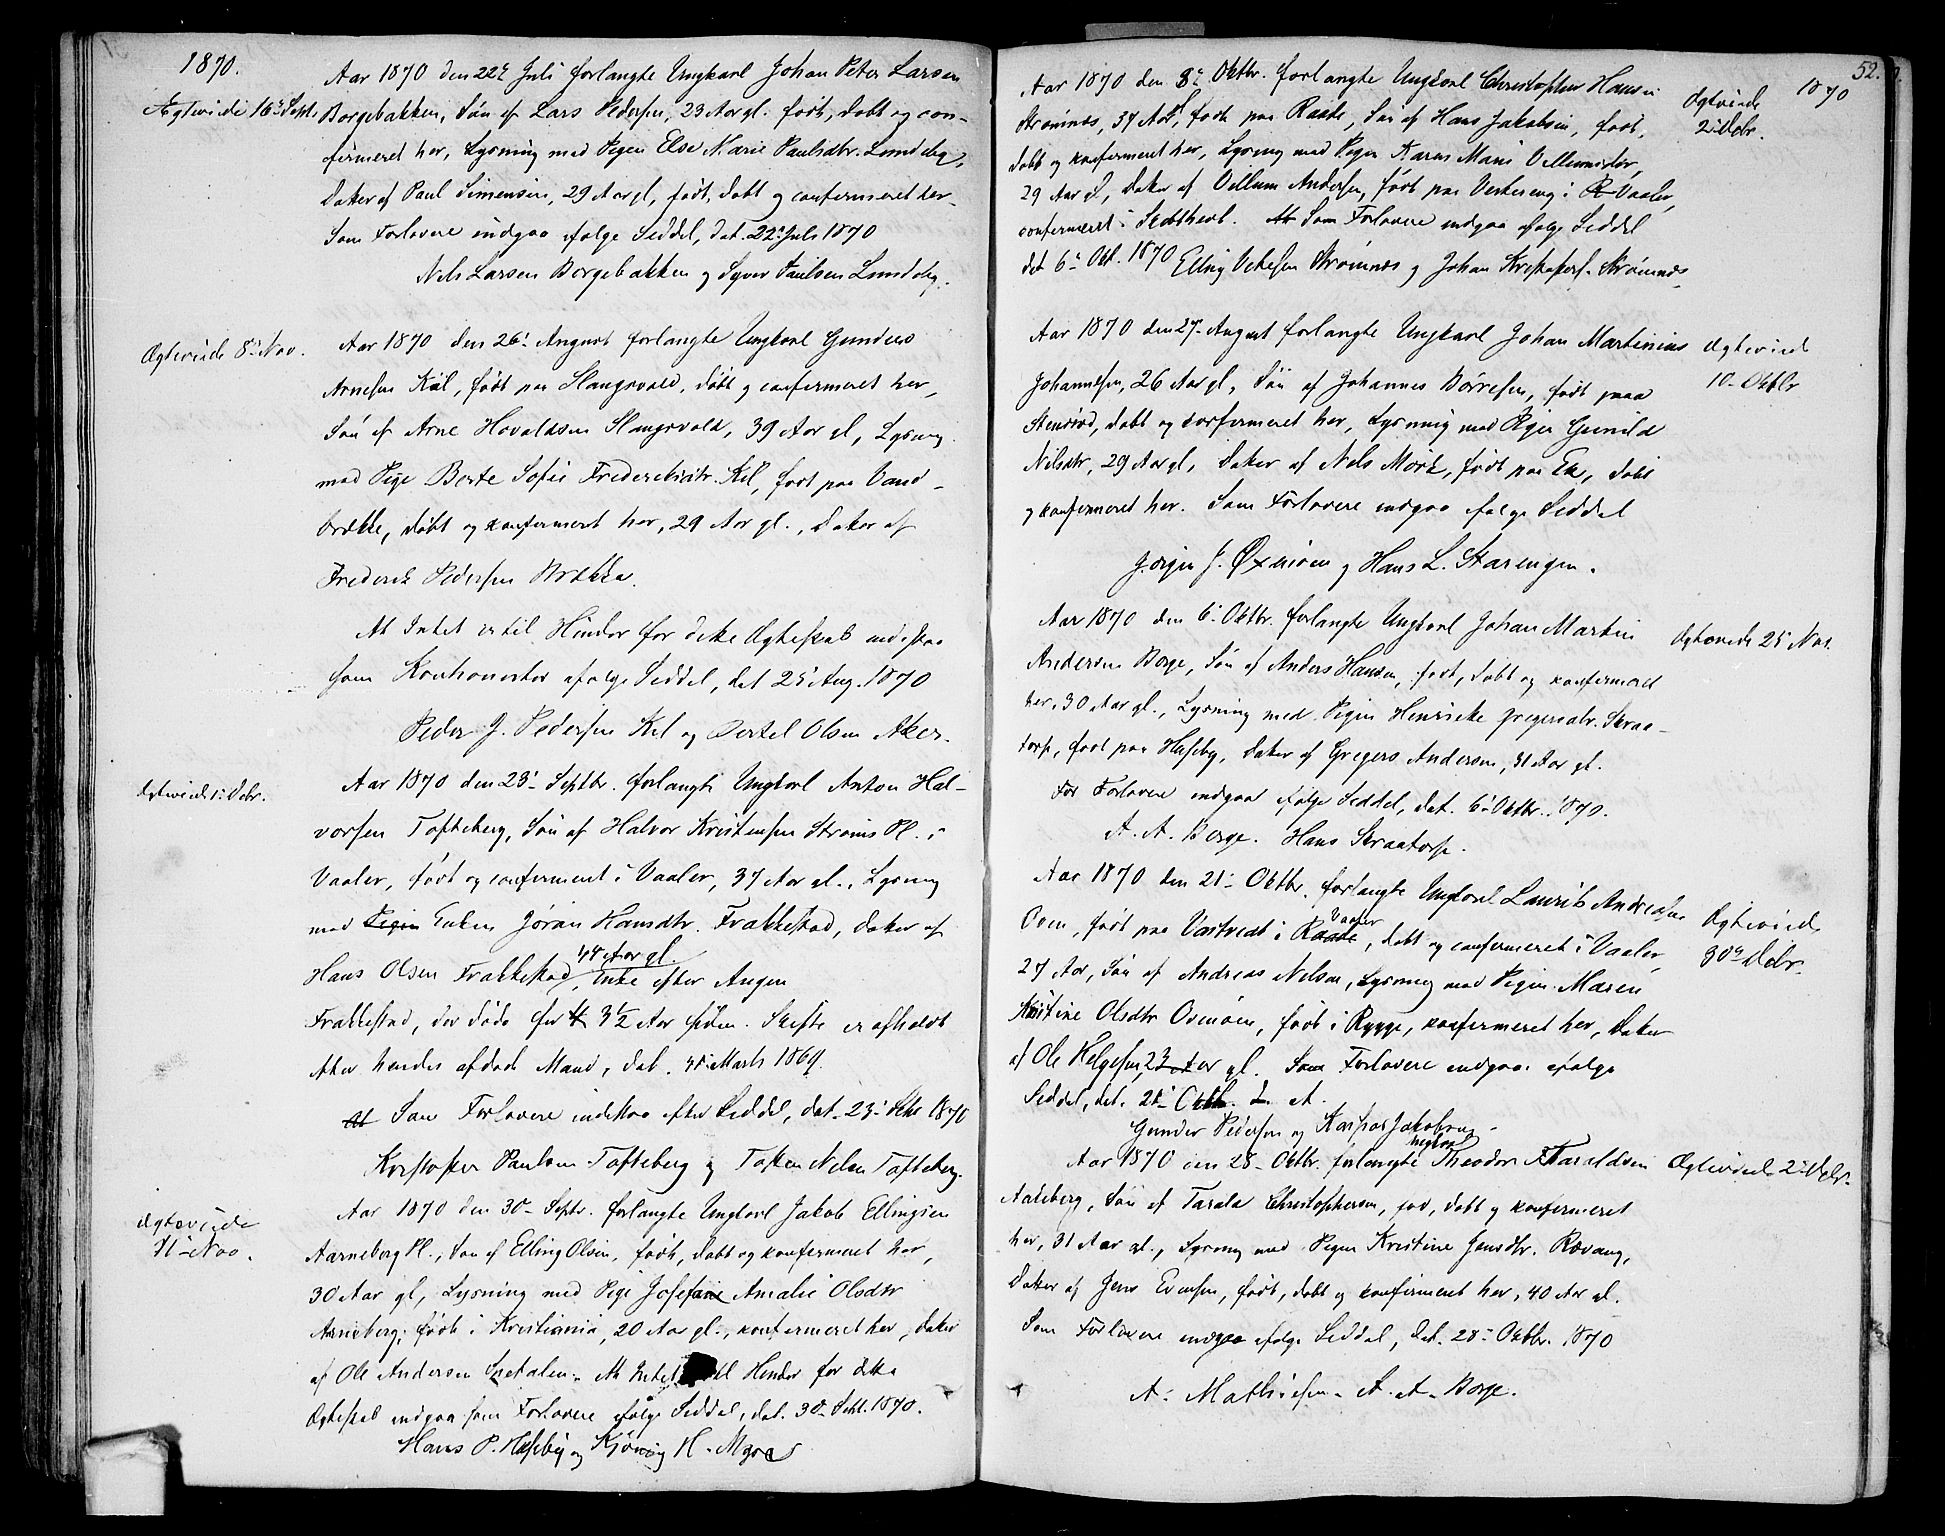 1870.
Aar 1870 den 22de Juli forlangte Ungkarl Johan Peter Larsen
Ægteviede 16de Septr.
Borgebakken, Søn af Lars Pedersen, 23 Aar gl. født, døbt og con-
firmeret her, Lysning med Pigen Else Marie Paulsdtr. Lundeby,
Datter af Paul Simensen, 29 Aar gl, født, døbt og confirmeret her.
Som Forlovere indgaa ifølge Seddel, dat. 22de Juli 1870
Nils Larsen Borgebakken og Syver Paulsen Lundeby.
Ægteviede 8de Nov.
Aar 1870 den 26de August forlangte Ungkarl Gunders
Arnesen Kiil, født paa Slangsvold, døbt og confirmeret her,
Søn af Arne Hovaldsen Slangsvold, 39 Aar gl, Lysning
med Pige Berte Sofie Frederiksdtr. Kil, født paa Vand-
brække, døbt og konfirmeret her, 29 Aar gl., Datter af
Frederik Pedersen Brække.
At Intet er til Hinder for dette Ægteskab indestaa
som Kautionister ifølge Seddel, dat 25 Aug. 1870
Peder J. Pedersen Kil og Bertel Olsen Aker.
Ægteviede 1ste Debr.
Aar 1870 den 23de Septbr. forlangte Ungkarl Anton Hal-
vorsen Tofteberg, Søn af Halvor Kristensen Strøms Pl. i
Vaaler, født og confirmeret i Vaaler, 37 Aar gl., Lysning
med Pigen Enken Jøran Hansdtr. Frakkestad, Datter af
44 Aar gl.
Hans Olsen Frakkestad, Enke efter Augen
Frakkestad, der døde for 4 3½ Aar siden. Skifte er afholdt
efter hendes afdøde Mand, dat. Marts 1869.
At Som Forlovere indestaa efter Seddel, dat. 23de Sebr 1870
Kristofer Paulsen Tofteberg og Tosten Nilsen Tofteberg.
Ægteviede
11te Nov.
Aar 1870 den 30te Septr. forlangte Ungkarl Jakob Ellingsen
Aarneberg Pl., Søn af Elling Olsen, født, døbt og konfirmeret her,
30 Aar gl, Lysning med Pige Josefine Amalie Olsdtr
Arneberg; født i Kristiania, 20 Aar gl., konfirmeret her, Datter
af Ole Andersen Spetalen. At Intet til Hinder for dette
Ægteskab indgaa som Forlovere ifølge Seddel, dat. 30te Sebt. 1870.
Hans P. Huseby og H. Myra
52.
1870
Aar 1870 den 8de Oktbr. forlangte Ungkarl Christopher Hansen
Ægteviede
2den Debr.
Strømnes, 34 Aar, født paa Raade, Søn af Hans Jakobsen, født,
døbt og konfirmeret her, Lysning med Pigen Karen Marie Villumsdtr,
29 Aar gl, Datter af Villum Andersen, født paa Verkereng i R Vaaler,
confirmeret i Skibthvet. At Som Forlovere indgaa ifølge Seddel
dat 6te Okt. 1870 Elling Strømnes og Johan Kristofers. Strømnes.
Aar 1870 den 27de August forlangte Ungkarl Johan Martinius
Ægteviede
10de Oktbr
Johannesen, 26 Aar gl, Søn af Johannes Børresen, født paa
Stensrød, døbt og confirmeret her, Lysning med Pigen Gunild
Nilsdtr, 29 Aar gl, Datter af Nils Mørk, født paa Ek, døbt
og konfirmeret her. Som Forlovere indgaa ifølge Seddel
Jørgen J. Øxnøen og Hans L. Starengen.
Aar 1870 den 6te Oktbr. forlangte Ungkarl Johan Martin
Ægteviede 25de Nov.
Andersen Borge, Søn af Anders Hansen, født, døbt og konfirmeret
her, 30 Aar gl., Lysning med Pigen Henrikke Gregersdtr. Skraa-
torp, født paa Huseby, Datter af Gregers Andersen, 31 Aar gl.
For Forlovere indgaa ifølge Seddel, dat. 6te Oktbr. 1870.
A. A. Borge. Hans Skraatorp.
Aar 1870 den 21de Oktbr. forlangte Ungkarl Laurits Andreasen
Ægteviede
30te Debr.
Vaaler
Oven, født paa Vastvedt i Raade, døbt og confirmeret i Vaaler,
27 Aar, Søn af Andreas Nilsen, Lysning med Pigen Maren
Kristine Olsdtr Ovenøen, født i Rygge, konfirmeret her, Datter
af Ole Helgesen, 23 Aar gl. Som Forlovere indgaa ifølge
Seddel, dat. 21de Oktb. d. A.
Gunder Pedersen og Kaspar Jakobsen.
Ungkarl
Aar 1870 den 28de Oktbr. forlangte Theodor Taraldsen
Ægteviede 2den Debr.
Aaleberg, Søn af Tarald Christophersen, fød, døbt og konfirmeret
her, 31 Aar gl., Lysning med Pigen Kristine Jensdtr. Ravang,
Datter af Jens Evensen, født, døbt og konfirmeret her, 40 Aar gl.
Som Forlovere indgaa ifølge Seddel, dat. 28de Oktbr. 1870
A. Mathiesen. A. A. Borge.